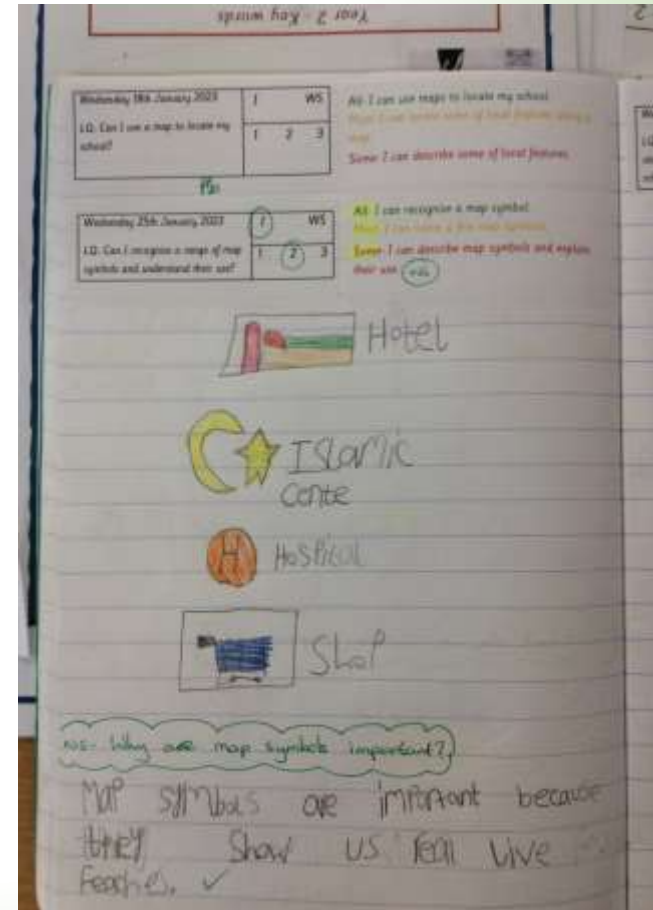 Year 2 - Key words
Wednesday 18th January 2023
I
WS
L.Q: Can I use a map to locate my
school?
1 2 3
All: I can use maps to locate my school.
Most: I can locate some of local features using a
map.
Some: I can describe some of local features.
Wednesday 25th January 2023
I
WS
L.Q: Can I recognise a range of map
symbols and understand their use?
1 2 3
All: I can recognise a map symbol.
Most: I can name a few map symbols.
Some: I can describe map symbols and explain
their use.
Hotel
Islamic
Cente
H
Hospital
Shop
NS- Why are map symbols important?
Map symbols are important because
they show us real live